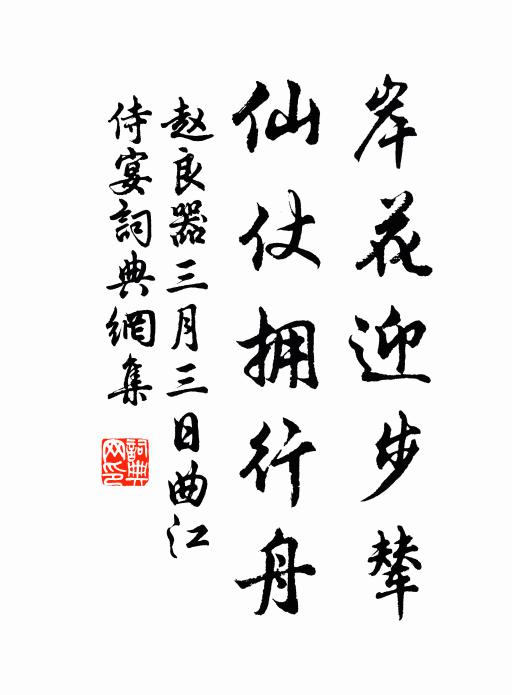 岸花迎步辇
仙仗拥行舟
赵良器三月三日曲江
侍宴詞典網集
詞典网印